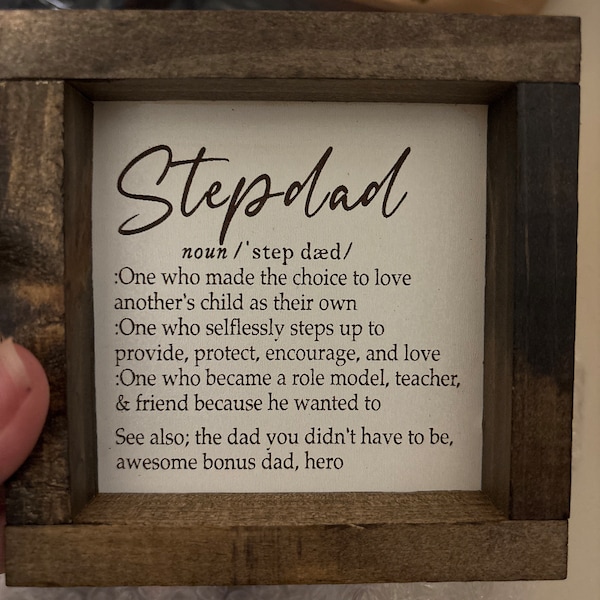 Stepdad
noun /ˈstep dæd/
:One who made the choice to love
another's child as their own
:One who selflessly steps up to
provide, protect, encourage, and love
:One who became a role model, teacher,
& friend because he wanted to
See also; the dad you didn't have to be,
awesome bonus dad, hero